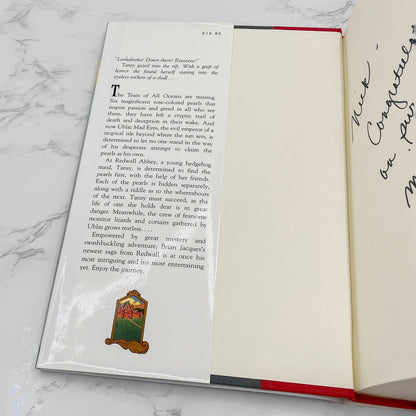 $19.95
"Lookalooka! Down there! Eeeeeeee!"
Tansy gazed into the rift. With a gasp of
horror she found herself staring into the
eyeless sockets of a skull.
The Tears of All Oceans are missing.
Six magnificent rose-colored pearls that
inspire passion and greed in all who see
them, they have left a cryptic trail of
death and deception in their wake. And
now Ublaz Mad Eyes, the evil emperor of a
tropical isle beyond where the sun sets, is
determined to let no one stand in the way
of his desperate attempt to claim the
pearls as his own.
At Redwall Abbey, a young hedgehog
maid, Tansy, is determined to find the
pearls fine, with the help of her friends.
Each of the pearls is hidden separately,
along with a riddle as to the whereabouts
of the next. Tansy must succeed, as the
life of one she holds dear is in great
danger. Meanwhile, the crew of fearsome
monitor lizards and corsairs gathered by
Ublaz grows restless. . . .
Empowered by great mystery and
swashbuckling adventure, Brian Jacques's
newest saga from Redwall is at once his
most intriguing and his most entertaining
yet. Enjoy the journey.
Nick -
Congratul
on